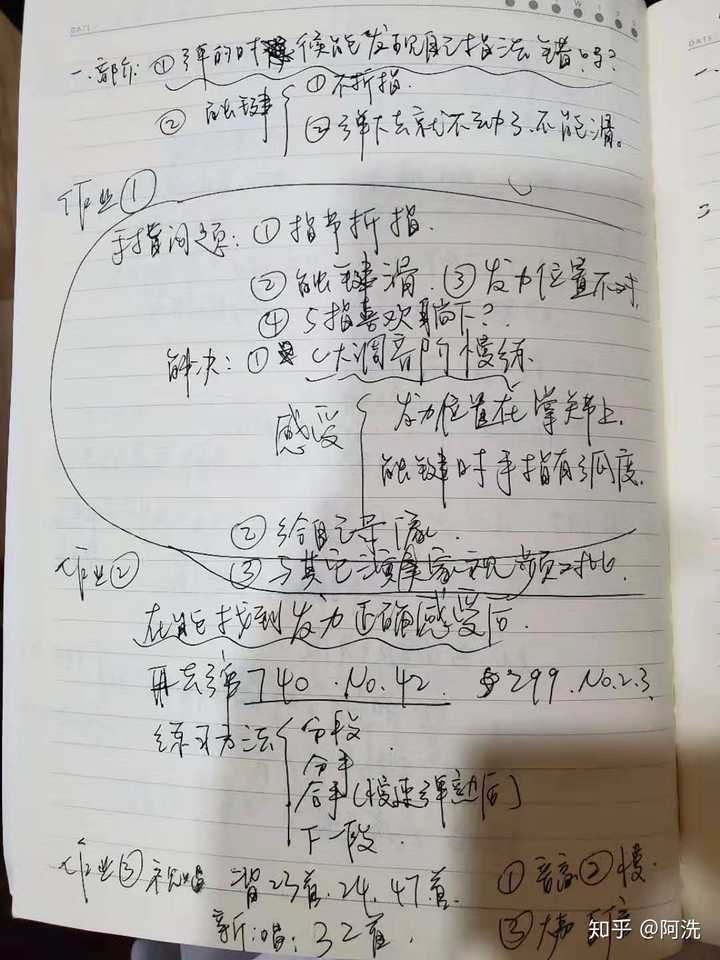 DATE
一.部分: ①弹的时候能发现自己指法错吗?
② 触键 ①不折指.
②弹下去就不动了.不能滑。
作业①
手指问题: ①指节折指.
②触键滑.③发力位置不对.
④5指喜欢躺下?
解决: ① C大调音阶慢练.
感受 发力位置在掌关节上.
触键时手指有弧度.
②给自己录像.
作业② ③与其它演奏家视频对比.
在能找到发力正确感受后.
再去弹 740.No.42. 299.No.2.3.
练习方法 分段.
分手
合手(慢速弹熟后)
下一段.
作业③ 视唱 背23首.24.47首. ①音高②慢.
新唱: 32首. ③大声
DATE
知乎 @阿洗